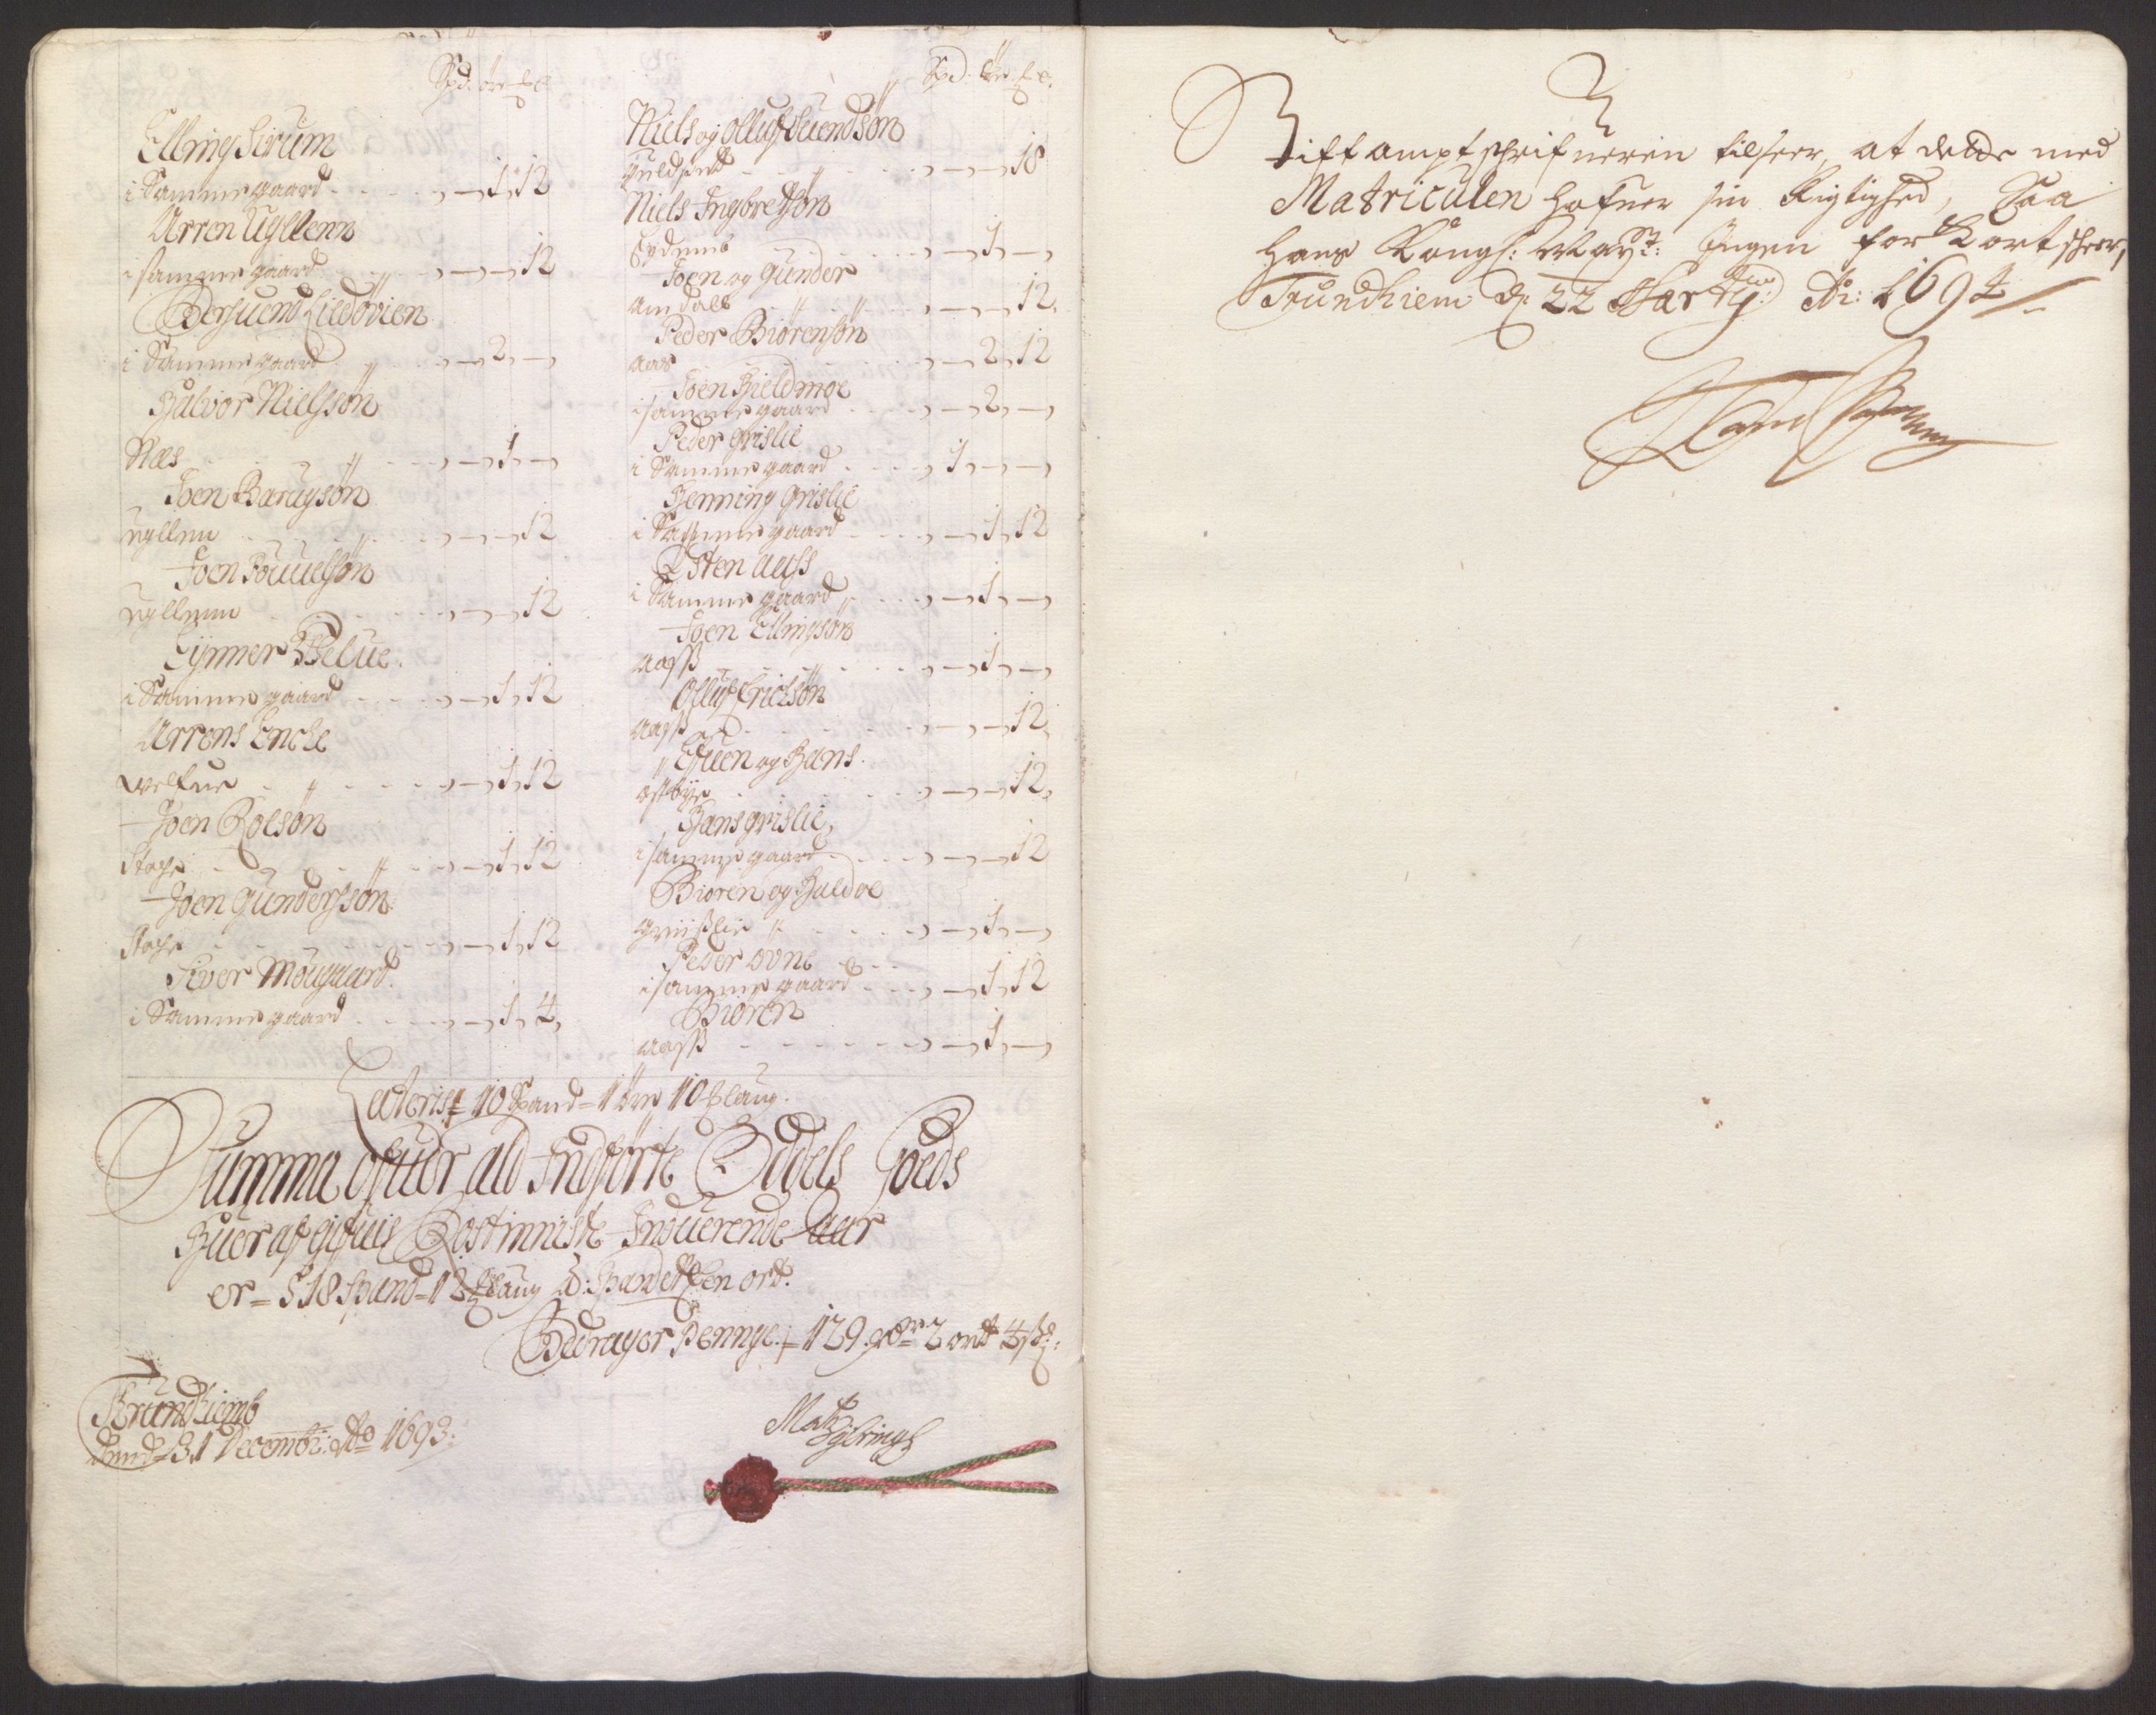 Spd. øre ℔
Elling Sirum
i Samme gaard - - - 1,12
Arren Ugllenn
i samme gaard - - - 12
Bersuend
i Samme gaard - 2, -
Halvor Nielssøn
Næs - 1 -
Joen Baruysøn
ugllem - - - 12
Joen Pouuelsøn
ugllemn - - - 12
Eynner Welue.
i Samme gaard - - - 1,12
Arrens Encke
welfue - - - 1,12
Joen Roesøn
Stoche - - - 1,12
Joen Gundersøn
Stoche - - - 1,12
Siver Mougaard.
i Samme gaard - - - 1, 4,
Spd. øre ℔
Niels og Olluf Suendsøn
- - - 18
Niels Ingbretsøn
- 1 -
Joen og Gunder
Amdals - - - 12,
Peder Biørensøn
Aas - 2, 12
Joen Hieldmoe
i samme gaard - - 2, -
Peder Grislie
i Samme gaard - - 1 - -
Henning Grislie
i Samme gaard - - 1,12
Østen Aass
i Samme gaard - - 1, -
Joen Ellingsøn
Aass - - 1, -
Olluf Erichsøn
Aass - - - 12,
Efuen og Hans.
østbye - - - 12,
Hans Grislie,
i samme gaard - - - 12
Biøren og Haldoe
Griisslie - - 1, -
Peder Ovne
i samme gaard - - 1,12
Biøren
Aass - - - 1, -
Lateris = 10 Spand - 1 øre 10 ℔laug.
Summa ofuer ald Indførte Odels Goeds
Huer af gifuis Rostinniste Indverende Aar
er = 518 Spand - 12 ℔laug à: Spandet Een ort.
Bedrager Pennge = 129 Rdr 2 ort 4 s:
Trundhiemb
dend 31 Decembr: Ao 1693:
Stiftamptschrifueren tilseer, at dette med
Matriculen hafuer sin Rigtighed, Saa
hans Kongl: Mayst: Ingen for Kort scheer,
Trundhiem d 22 Marty: Ao: 1694